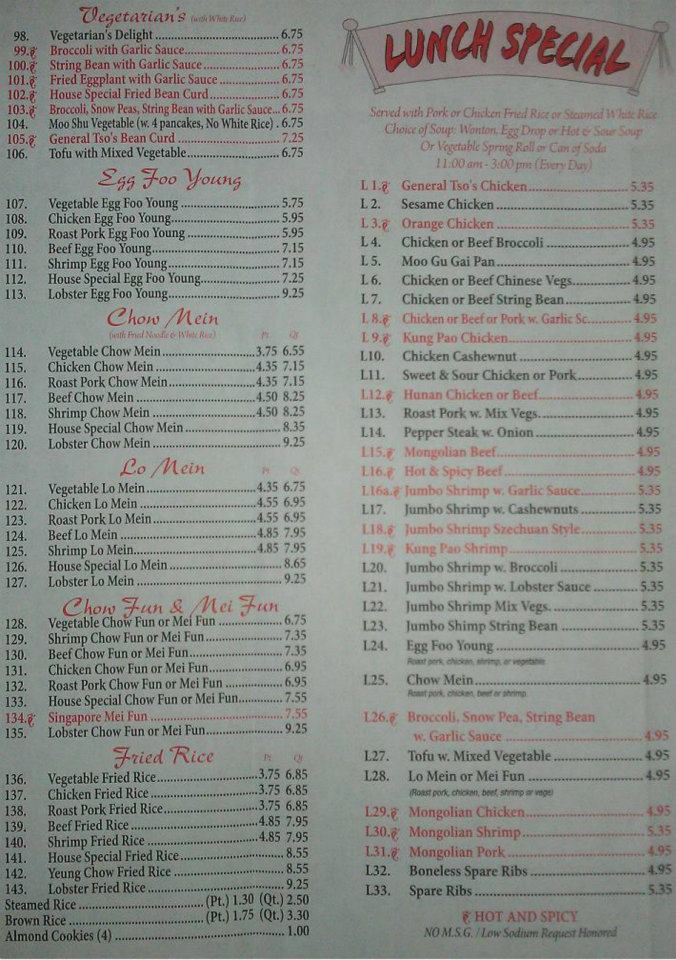 Vegetarian's (with White Rice)
98. Vegetarian's Delight 6.75
99. Broccoli with Garlic Sauce 6.75
100. String Bean with Garlic Sauce 6.75
101. Fried Eggplant with Garlic Sauce 6.75
102. House Special Fried Bean Curd 6.75
103. Broccoli, Snow Peas, String Bean with Garlic Sauce 6.75
104. Moo Shu Vegetable (w. 4 pancakes, No White Rice) 6.75
105. General Tso's Bean Curd 7.25
106. Tofu with Mixed Vegetable 6.75
Egg Foo Young
107. Vegetable Egg Foo Young 5.75
108. Chicken Egg Foo Young 5.95
109. Roast Pork Egg Foo Young 5.95
110. Beef Egg Foo Young 7.15
111. Shrimp Egg Foo Young 7.15
112. House Special Egg Foo Young 7.25
113. Lobster Egg Foo Young 9.25
Chow Mein
(with Fried Noodle & White Rice) Pt Qt
114. Vegetable Chow Mein 3.75 6.55
115. Chicken Chow Mein 4.35 7.15
116. Roast Pork Chow Mein 4.35 7.15
117. Beef Chow Mein 4.50 8.25
118. Shrimp Chow Mein 4.50 8.25
119. House Special Chow Mein 8.35
120. Lobster Chow Mein 9.25
Lo Mein Pt Qt
121. Vegetable Lo Mein 4.35 6.75
122. Chicken Lo Mein 4.55 6.95
123. Roast Pork Lo Mein 4.55 6.95
124. Beef Lo Mein 4.85 7.95
125. Shrimp Lo Mein 4.85 7.95
126. House Special Lo Mein 8.65
127. Lobster Lo Mein 9.25
Chow Fun & Mei Fun
128. Vegetable Chow Fun or Mei Fun 6.75
129. Shrimp Chow Fun or Mei Fun 7.35
130. Beef Chow Fun or Mei Fun 7.35
131. Chicken Chow Fun or Mei Fun 6.95
132. Roast Pork Chow Fun or Mei Fun 6.95
133. House Special Chow Fun or Mei Fun 7.55
134. Singapore Mei Fun 7.55
135. Lobster Chow Fun or Mei Fun 9.25
Fried Rice Pt Qt
136. Vegetable Fried Rice 3.75 6.85
137. Chicken Fried Rice 3.75 6.85
138. Roast Pork Fried Rice 3.75 6.85
139. Beef Fried Rice 4.85 7.95
140. Shrimp Fried Rice 4.85 7.95
141. House Special Fried Rice 8.55
142. Yeung Chow Fried Rice 8.55
143. Lobster Fried Rice 9.25
Steamed Rice (Pt.) 1.30 (Qt.) 2.50
Brown Rice (Pt.) 1.75 (Qt.) 3.30
Almond Cookies (4) 1.00
LUNCH SPECIAL
Served with Pork or Chicken Fried Rice or Steamed White Rice
Choice of Soup: Wonton, Egg Drop or Hot & Sour Soup
Or Vegetable Spring Roll or Can of Soda
11:00 am - 3:00 pm (Every Day)
L 1. General Tso's Chicken 5.35
L 2. Sesame Chicken 5.35
L 3. Orange Chicken 5.35
L 4. Chicken or Beef Broccoli 4.95
L 5. Moo Gu Gai Pan 4.95
L 6. Chicken or Beef Chinese Vegs. 4.95
L 7. Chicken or Beef String Bean 4.95
L 8. Chicken or Beef or Pork w. Garlic Sc. 4.95
L 9. Kung Pao Chicken 4.95
L10. Chicken Cashewnut 4.95
L11. Sweet & Sour Chicken or Pork 4.95
L12. Hunan Chicken or Beef 4.95
L13. Roast Pork w. Mix Vegs. 4.95
L14. Pepper Steak w. Onion 4.95
L15. Mongolian Beef 4.95
L16. Hot & Spicy Beef 4.95
L16a. Jumbo Shrimp w. Garlic Sauce 5.35
L17. Jumbo Shrimp w. Cashewnuts 5.35
L18. Jumbo Shrimp Szechuan Style 5.35
L19. Kung Pao Shrimp 5.35
L20. Jumbo Shrimp w. Broccoli 5.35
L21. Jumbo Shrimp w. Lobster Sauce 5.35
L22. Jumbo Shrimp Mix Vegs. 5.35
L23. Jumbo Shimp String Bean 5.35
L24. Egg Foo Young 4.95
Roast pork, chicken, shrimp, or vegetable
L25. Chow Mein 4.95
Roast pork, chicken, beef or shrimp
L26. Broccoli, Snow Pea, String Bean
w. Garlic Sauce 4.95
L27. Tofu w. Mixed Vegetable 4.95
L28. Lo Mein or Mei Fun 4.95
(Roast pork, chicken, beef, shrimp or vege)
L29. Mongolian Chicken 4.95
L30. Mongolian Shrimp 5.35
L31. Mongolian Pork 4.95
L32. Boneless Spare Ribs 4.95
L33. Spare Ribs 5.35
HOT AND SPICY
NO M.S.G. / Low Sodium Request Honored